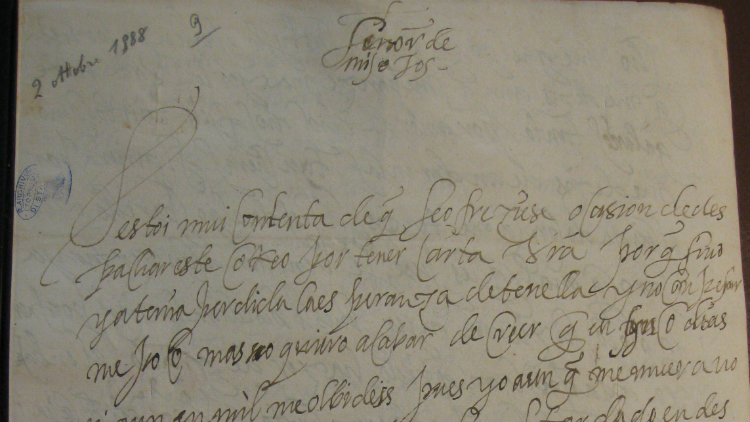 2 ottobre 1588 9
Señor de
mis ojos
estoi mui contenta de q̃ se ofreziese ocasion de des
pachar este coreo por tener carta vra porq̃ sino
ya tenia perdida la es peranza de tenella y no con pesar
me poco mas no quiero acabar de creer q̃ en dias
ni aun en mil me olbideis pues yo aun q̃ me muera no
tardado en des